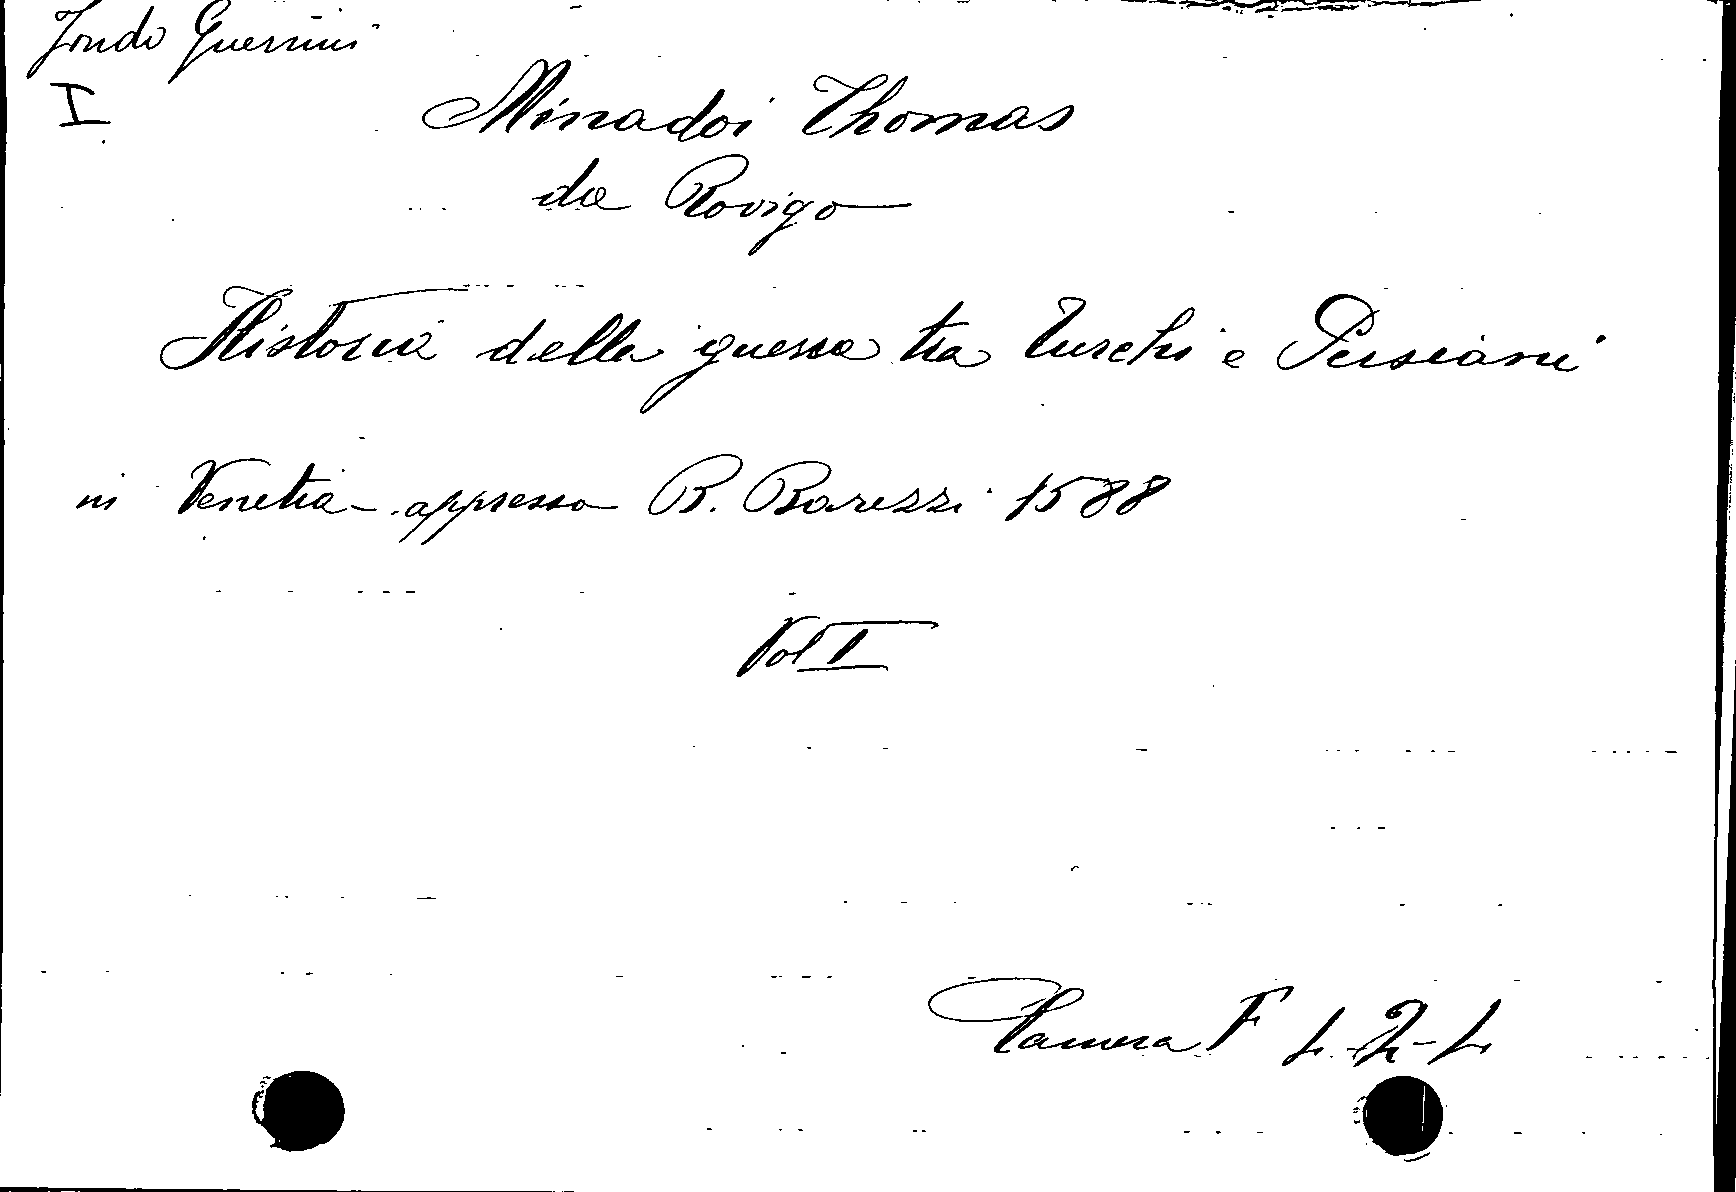 Fondo Guerrini
I
Minadoi Thomas
da Rovigo
Historia della guerra tra Turchi e Persiani
in Venetia - appresso B. Barezzi 1588
Vol I
Camera F